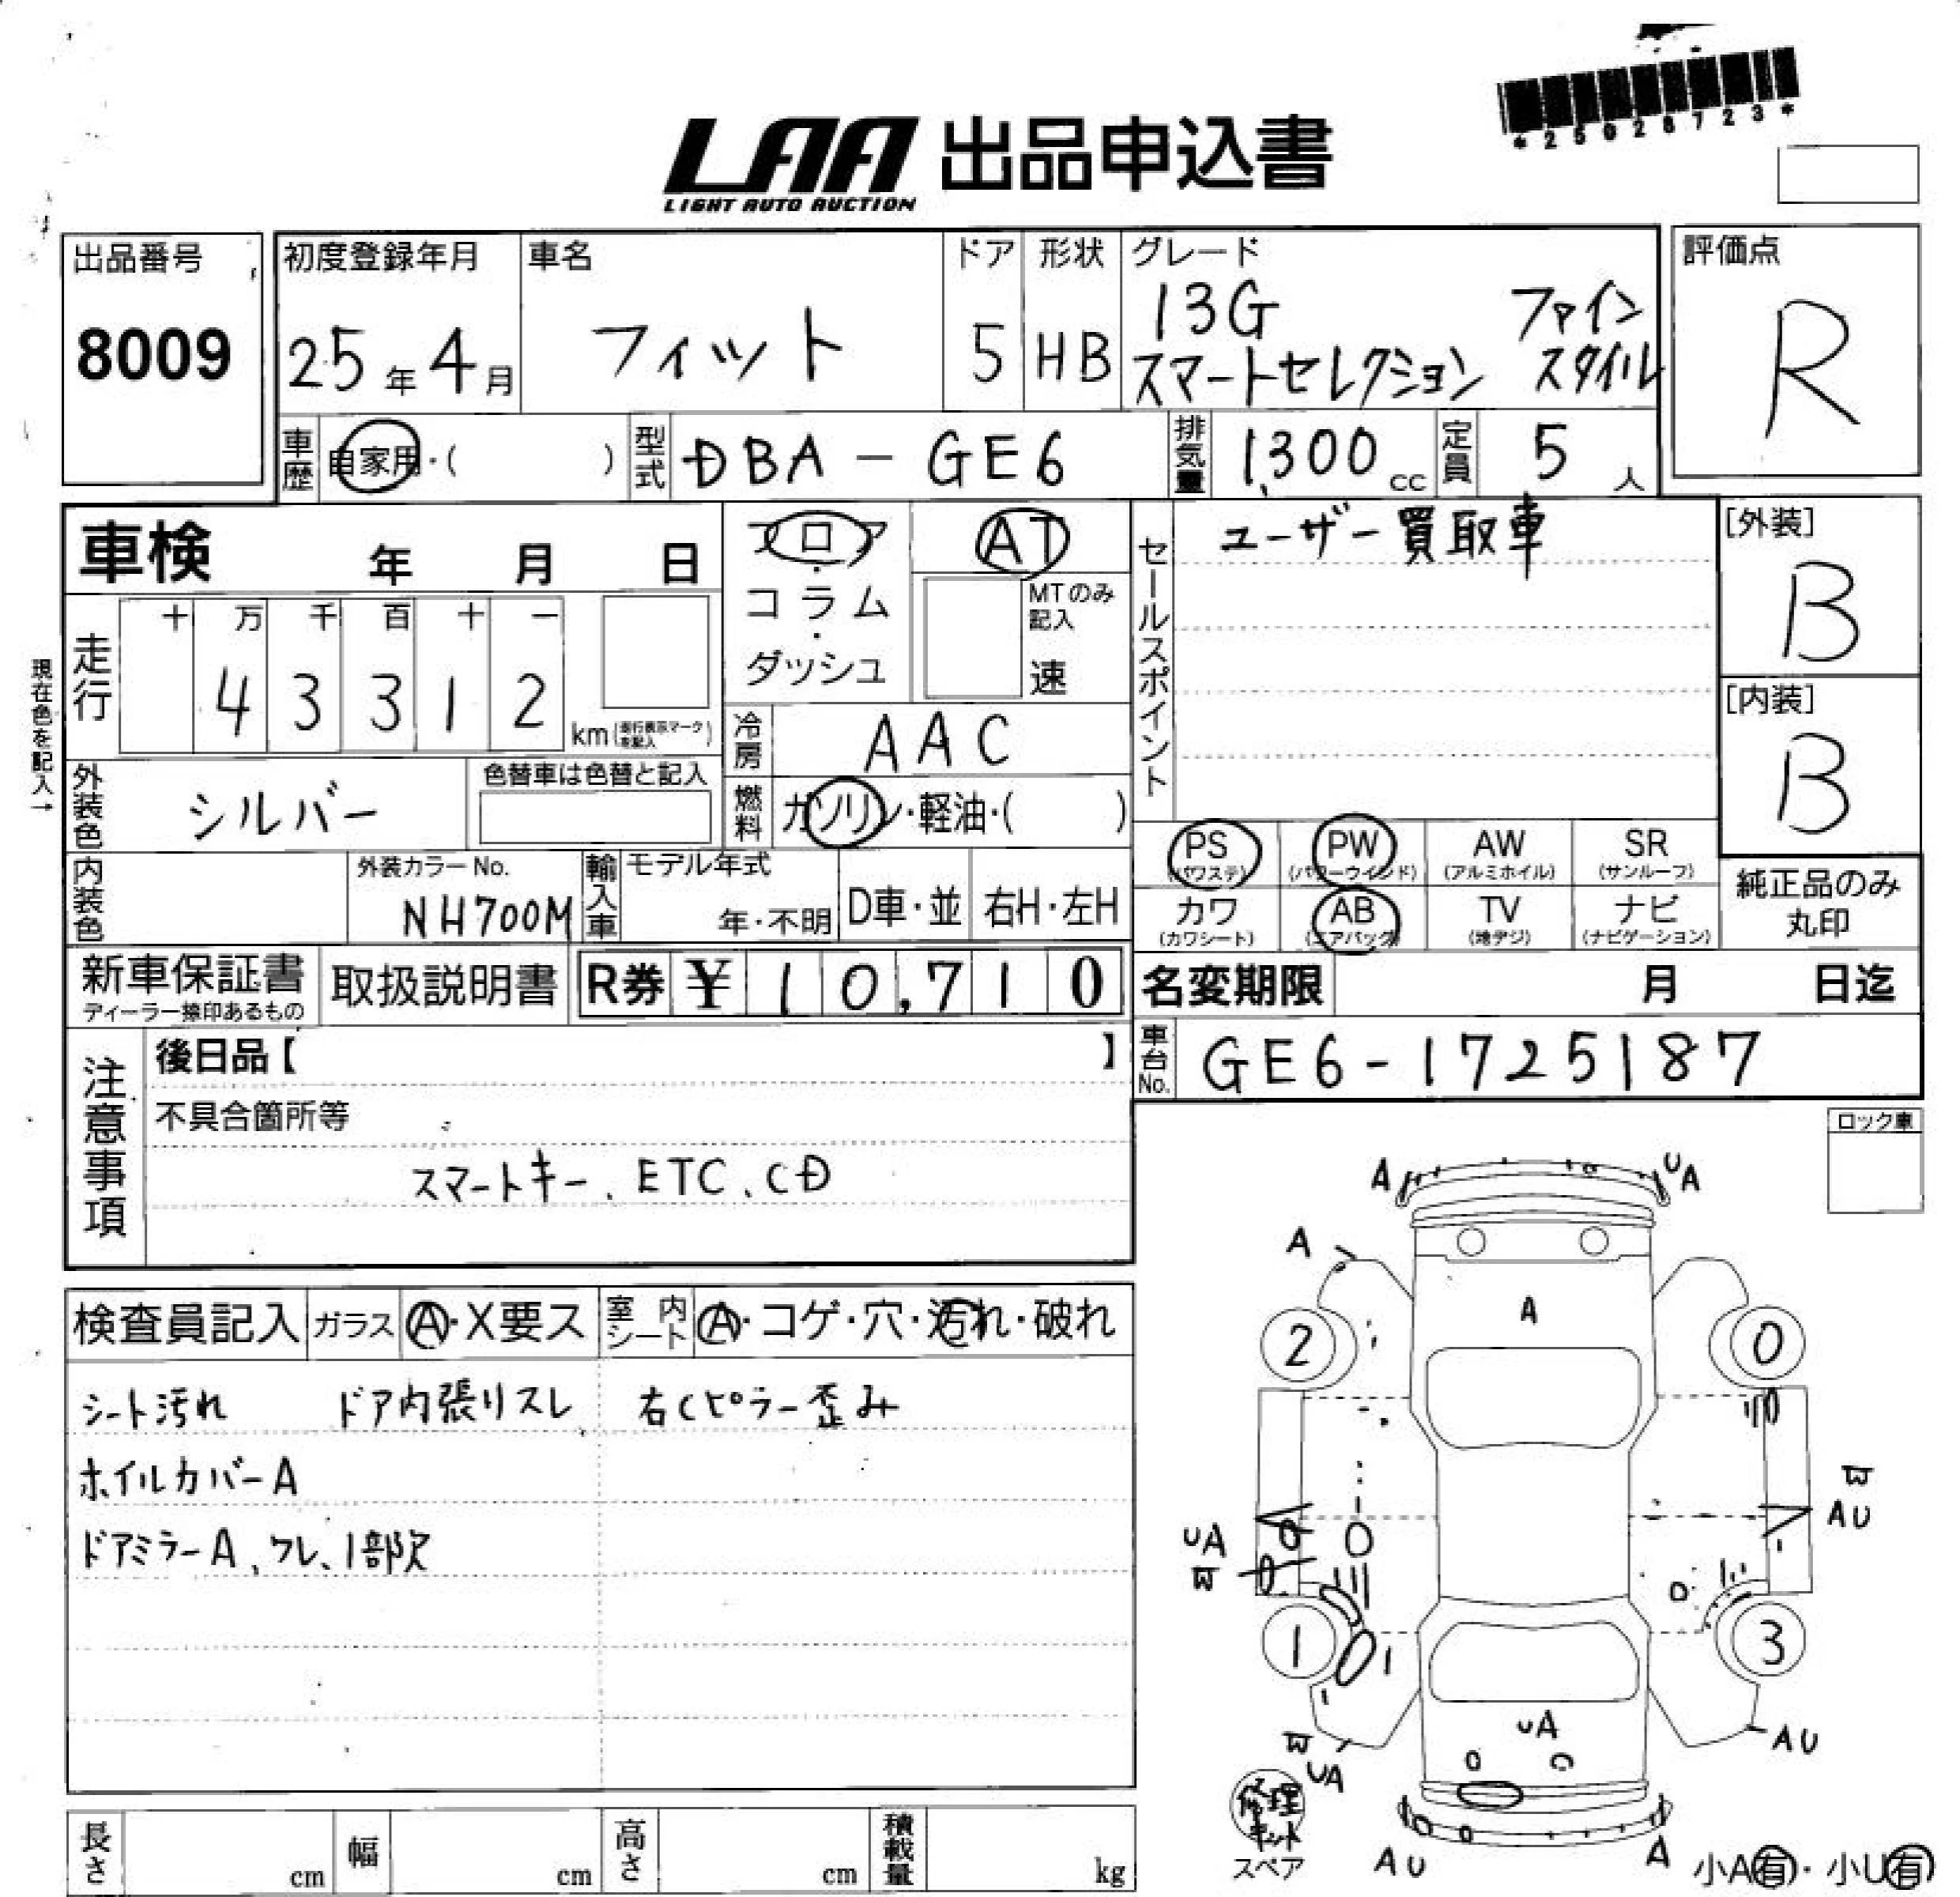 *25028723*
LAA 出品申込書
LIGHT AUTO AUCTION
出品番号
8009
初度登録年月
25年4月
車名
フィット
ドア
5
形状
HB
グレード
13G ファイン
スマートセレクション スタイル
評価点
R
車歴
自家用・( )
型式
DBA-GE6
排気量
1,300 cc
定員
5人
車検 年 月 日
フロア・コラム・ダッシュ
AT
MTのみ記入
速
セールスポイント
ユーザー買取車
[外装]
B
[内装]
B
現在色を記入→
走行
十 万 千 百 十 一
4 3 3 1 2
km(走行表示マークを記入)
冷房
AAC
燃料
ガソリン・軽油・( )
外装色
シルバー
色替車は色替と記入
内装色
外装カラーNo.
NH700M
輸入車
モデル年式
年・不明
D車・並
右H・左H
PS
(パワステ)
PW
(パワーウインド)
AW
(アルミホイル)
SR
(サンルーフ)
カワ
(カワシート)
AB
(エアバック)
TV
(地デジ)
ナビ
(ナビゲーション)
純正品のみ
丸印
新車保証書
ディーラー捺印あるもの
取扱説明書
R券 ¥10,710
名変期限 月 日迄
車台No.
GE6-1725187
注意事項
後日品【 】
不具合箇所等
スマートキー、ETC、CD
ロック車
検査員記入
ガラス
A・X要ス
室内シート
A・コゲ・穴・汚れ・破れ
シート汚れ ドア内張りスレ 右Cピラー歪み
ホイルカバーA
ドアミラーA、ワレ、1部欠
A
UA
A
A
2
0
W
AU
UA
W
1
3
UA
W
UA
AU
修理キット
スペア
AU
A
小A有・小U有
長さ
cm
幅
cm
高さ
cm
積載量
kg